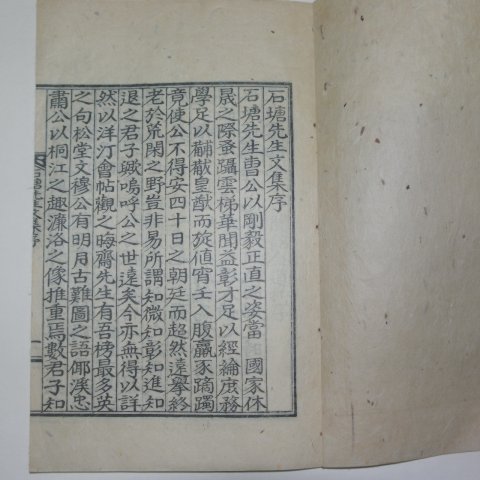 石塘先生文集序
石塘先生曺公以剛毅正直之姿當 國家休
晟之際蚤躡雲梯華聞益彰才足以經綸庶務
學足以黼黻皇猷而旋値宵壬入腹羸豕蹢躅
竟使公不得安四十日之朝廷而超然遠擧終
老於荒閑之野豈非易所謂知微知彰知進知
退之君子歟嗚呼公之世遠矣今亦無得以詳
然以泮汀會帖觀之晦齋先生有吾榜最多英
之句松堂文穆公有明月古難圖之語郷溪忠
肅公以桐江之趣濂洛之像推重焉數君子知
石塘先生文集序
一